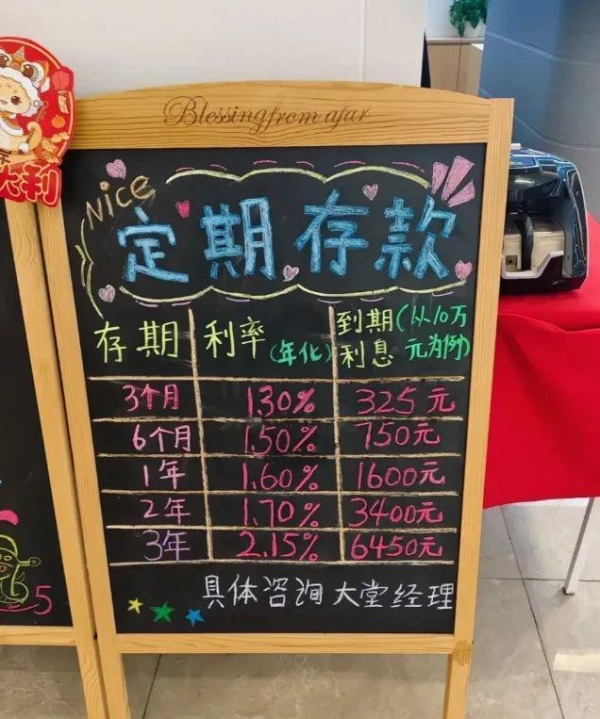 Blessing from afar
Nice
定期存款
存期 利率(年化) 到期利息(以10万元为例)
3个月 1.30% 325元
6个月 1.50% 750元
1年 1.60% 1600元
2年 1.70% 3400元
3年 2.15% 6450元
具体咨询大堂经理
大利
5